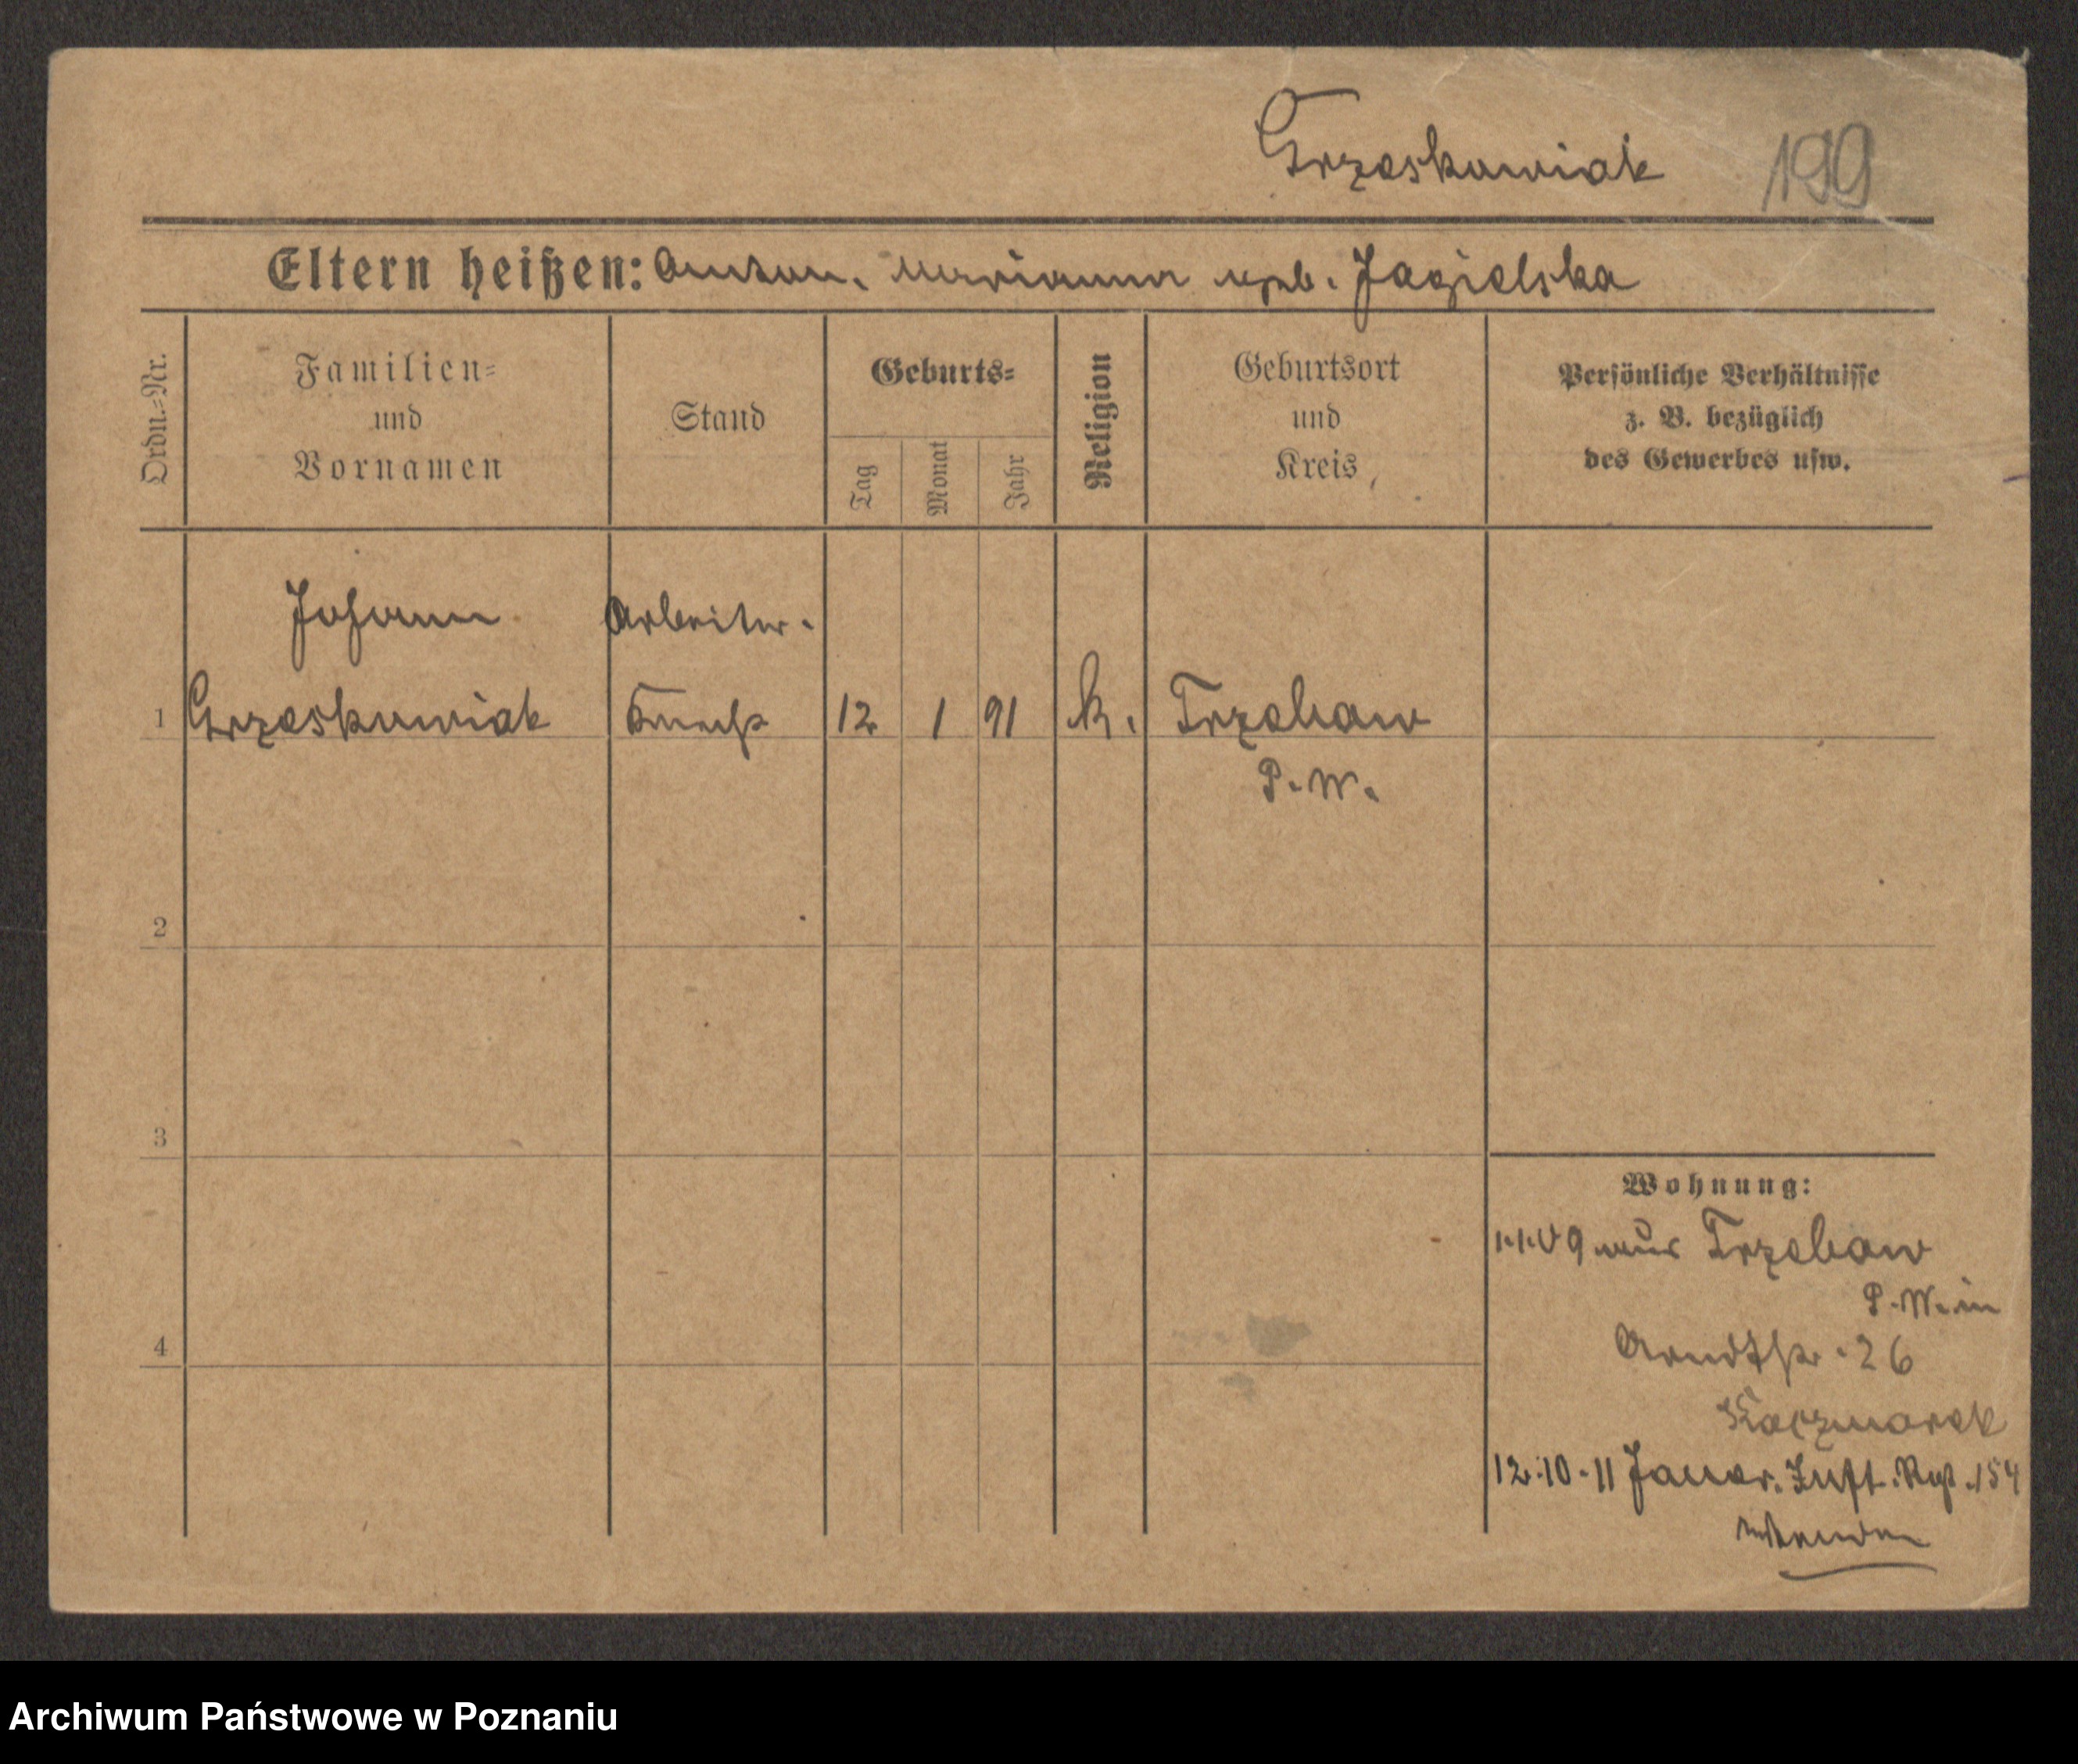 Grzeskowiak 199
Eltern heißen: Anton. Marianna geb. Jagielska
Ordn.=Nr.
Familien=
und
Vornamen
Stand
Geburts=
Tag
Monat
Jahr
Religion
Geburtsort
und
Kreis
Persönliche Verhältnisse
z. B. bezüglich
des Gewerbes usw.
Johann Arbeiter.
1 Grzeskowiak 12 1 91 k. Trzebaw
P. W.
2
3
Wohnung:
1.1.09 aus Trzebaw
P. W. in
4
Arndtstr. 26
Kaczmarek
12.10.11 Jauer. Inft. Rgt. 154
Archiwum Państwowe w Poznaniu